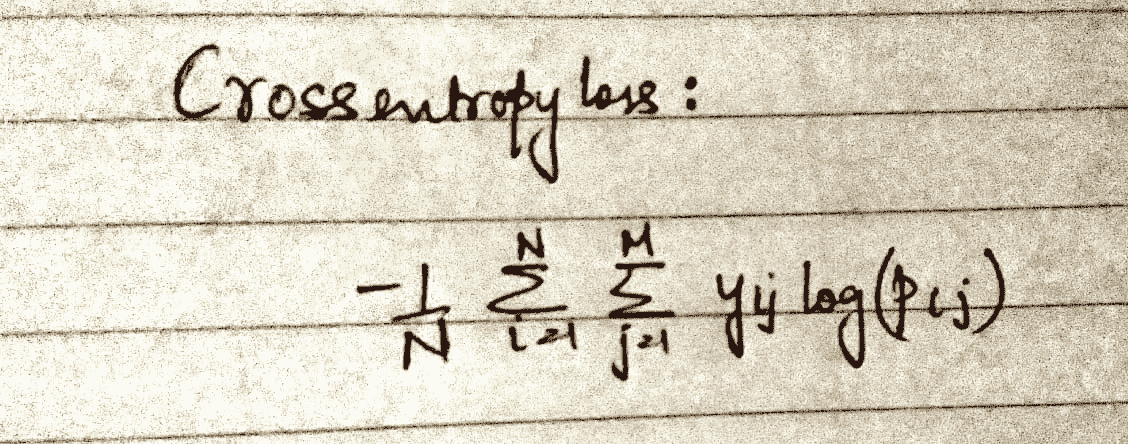 Crossentropy loss:
-1/N ∑_{i=1}^{N} ∑_{j=1}^{M} y_{ij} log(p_{ij})